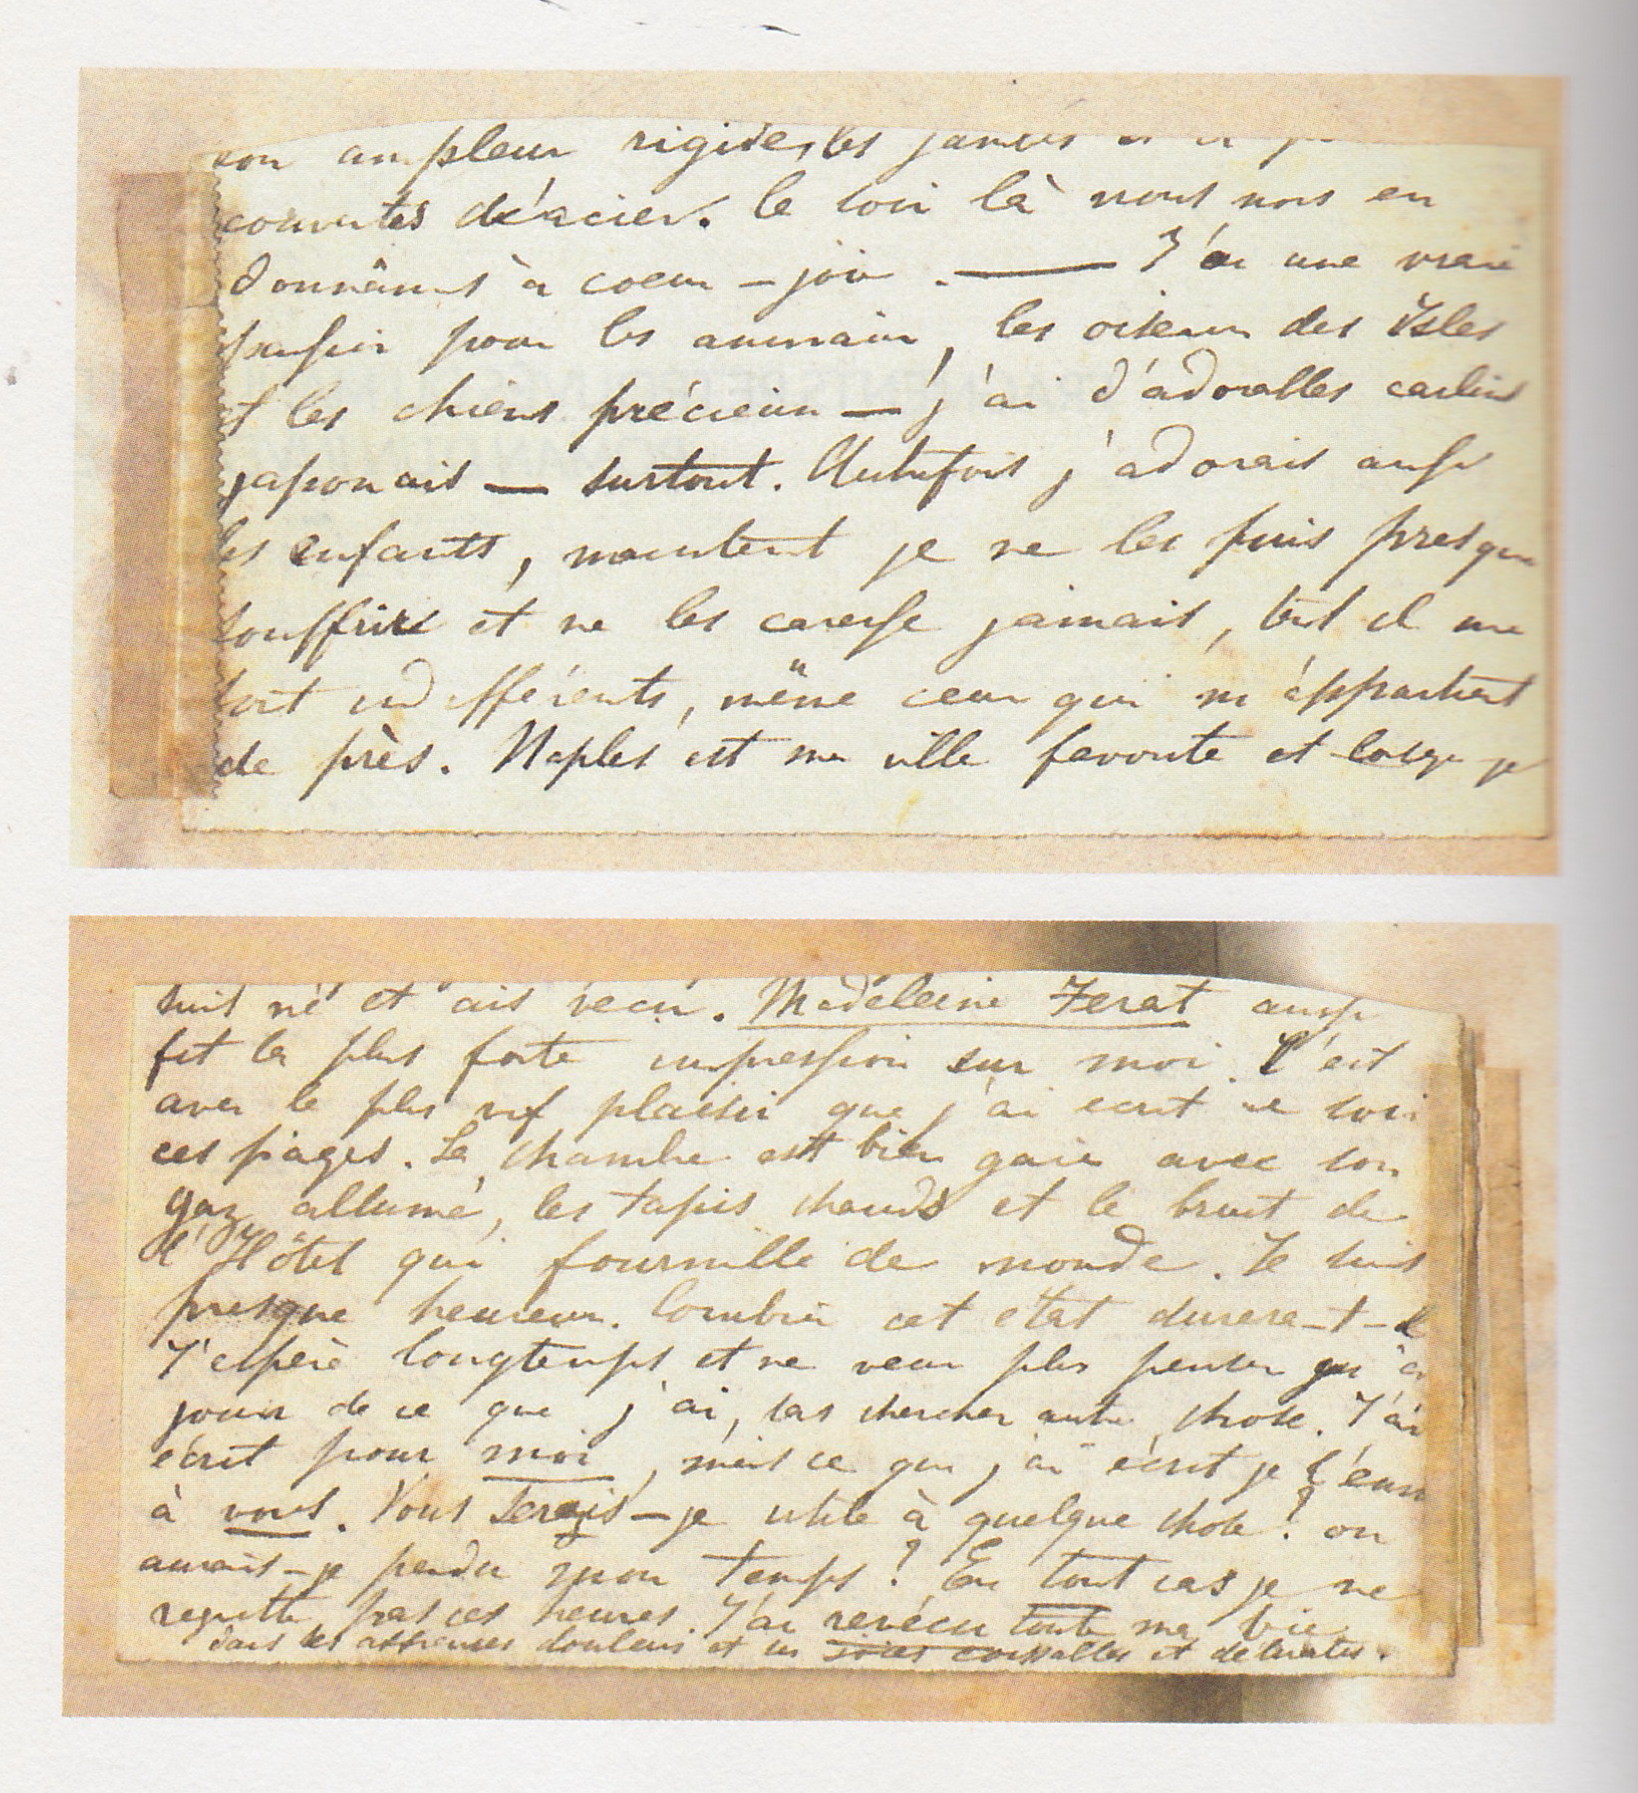 son ampleur rigide, les jambes et
couvertes d'acier. Ce soir là nous nous en
donnâmes à coeur-joie. — J'ai une vraie
passion pour les animaux, les oiseaux des Isles
et les chiens précieux — j'ai d'adorables carlins
japonais — surtout. Autrefois j'adorais aussi
les enfants, maintenant je ne les puis presque
souffrir et ne les caresse jamais, tant il me
sont indifférents, même ceux qui m'appartient
de près. Naples est ma ville favorite et lorsque je
suis né et ais vécu. Madeleine Ferat aussi
fit la plus forte impression sur moi. C'est
avec le plus vif plaisir que j'ai ecrit ce soir
ces pages. La chambre est bien gaie avec son
gaz allumé, les tapis chauds et le bruit de
l'Hôtel qui fourmille de monde. Je suis
presque heureux. Combien cet état durera-t-il
J'espère longtemps et ne veux plus penser qu'à
jouir de ce que j'ai, sans chercher autre chose. J'ai
écrit pour moi, mais ce que j'ai écrit je l'envoie
à vous. Vous serais-je utile à quelque chose? ou
aurais-je perdu mon temps? En tout cas je ne
regrette pas ces heures. J'ai revécu toute ma vie
dans les affreuses douleurs et les joies coupables et délirantes.